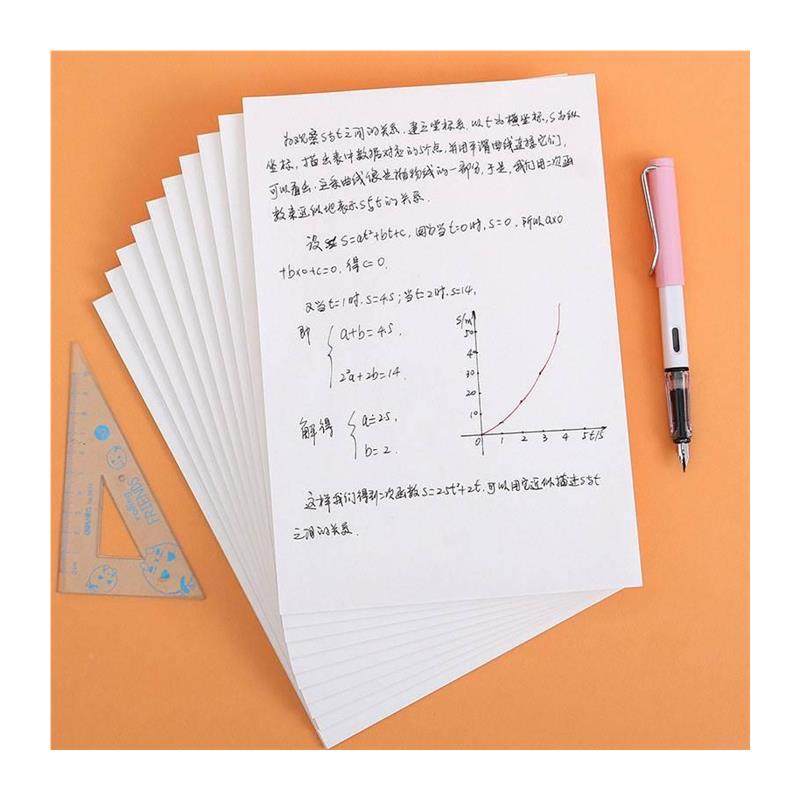 为观察s与t之间的关系,建立坐标系,以t为横坐标,s为纵
坐标,描出表中数据对应的5个点,并用平滑曲线连接它们,
可以看出,这条曲线像是抛物线的一部分,于是,我们用二次函
数来近似地表示s与t的关系.
设 s=at²+bt+c,因为当t=0时,s=0,所以a×0
+b×0+c=0,得c=0.
又当t=1时,s=4.5;当t=2时,s=14.
即
a+b=4.5,
2²a+2b=14.
解得
a=2.5,
b=2.
s/m
50
40
30
20
10
0 1 2 3 4 5 t/s
这样我们得到二次函数s=2.5t²+2t,可以用它近似描述s与t
之间的关系.
rolling
FRIENDS